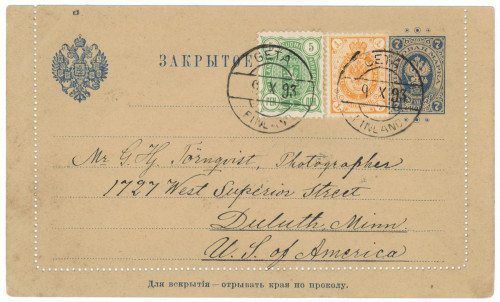 ЗАКРЫТОЕ
5
7 7
GETA
9 X 93
FINLAND
GETA
9 X 93
FINLAND
7 7
Mr. G. Hj. Törnqvist, Photographer
1727 West Superior Street
Duluth, Minn.
U. S. of America
Для вскрытія—отрывать края по проколу.